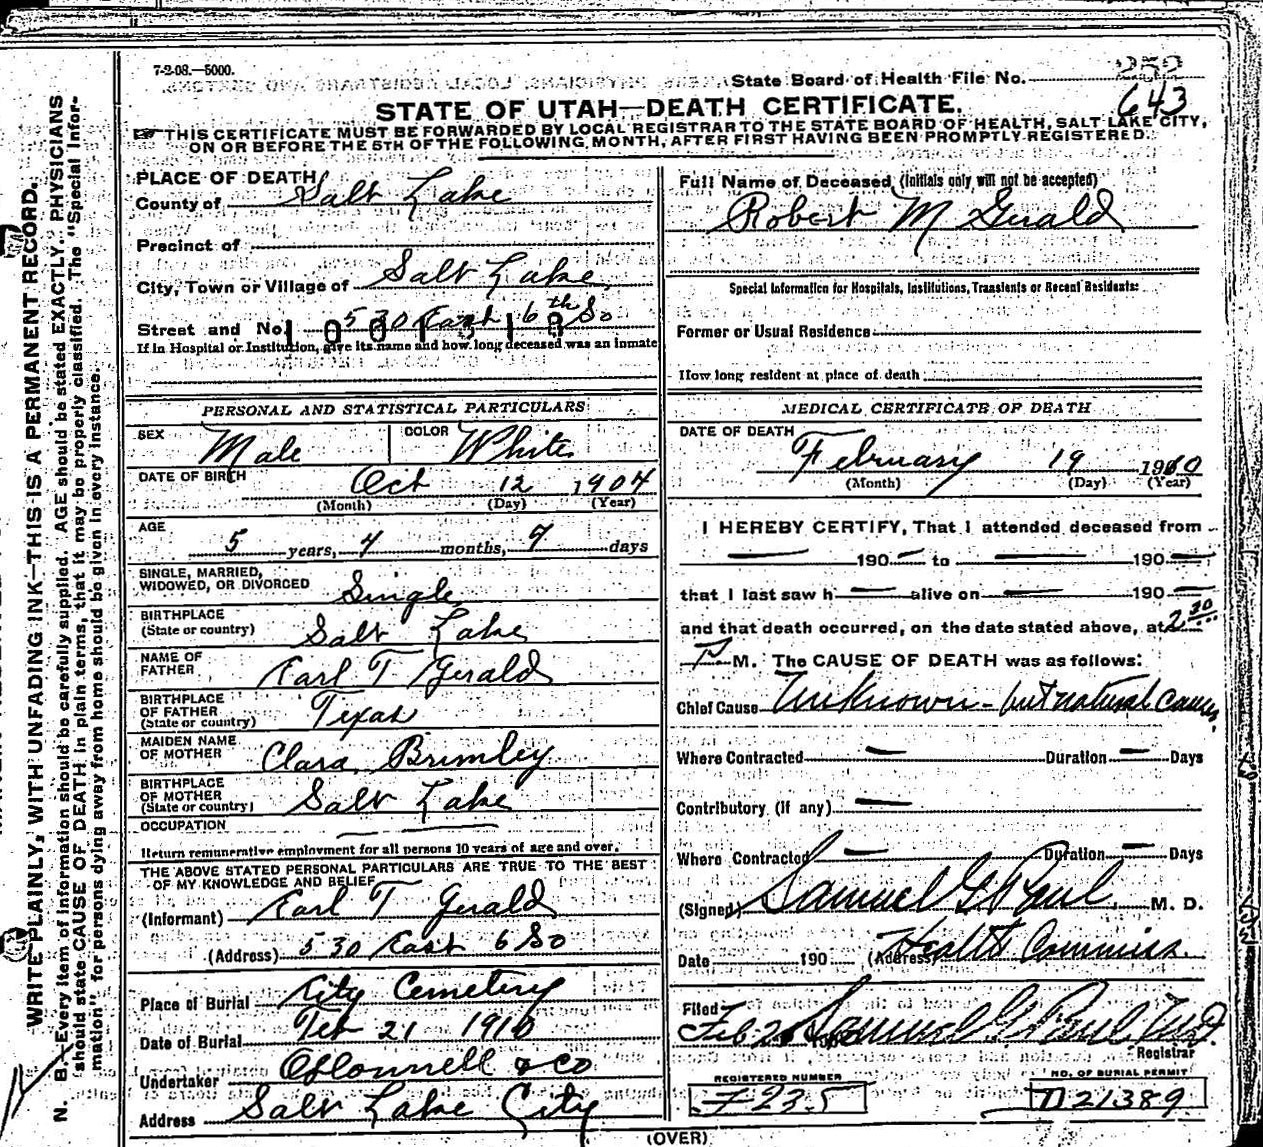 7-2-08.—5000.
State Board of Health File No.
252
643
STATE OF UTAH—DEATH CERTIFICATE.
THIS CERTIFICATE MUST BE FORWARDED BY LOCAL REGISTRAR TO THE STATE BOARD OF HEALTH, SALT LAKE CITY,
ON OR BEFORE THE 5TH OF THE FOLLOWING MONTH, AFTER FIRST HAVING BEEN PROMPTLY REGISTERED.
WRITE PLAINLY, WITH UNFADING INK—THIS IS A PERMANENT RECORD.
N. B.—Every item of information should be carefully supplied. AGE should be stated EXACTLY. PHYSICIANS
should state CAUSE OF DEATH in plain terms, that it may be properly classified. The "Special Infor-
mation" for persons dying away from home should be given in every instance.
PLACE OF DEATH
County of Salt Lake
Precinct of
City, Town or Village of Salt Lake
Street and No. 530 East 6th So
If in Hospital or Institution, give its name and how long deceased was an inmate
PERSONAL AND STATISTICAL PARTICULARS
SEX Male COLOR White
DATE OF BIRTH Oct 12 1904
(Month) (Day) (Year)
AGE 5 years, 4 months, 7 days
SINGLE, MARRIED,
WIDOWED, OR DIVORCED Single
BIRTHPLACE
(State or country) Salt Lake
NAME OF
FATHER Earl T Gerald
BIRTHPLACE
OF FATHER
(State or country) Texas
MAIDEN NAME
OF MOTHER Clara Brimley
BIRTHPLACE
OF MOTHER
(State or country) Salt Lake
OCCUPATION
Return remunerative employment for all persons 10 years of age and over.
THE ABOVE STATED PERSONAL PARTICULARS ARE TRUE TO THE BEST
OF MY KNOWLEDGE AND BELIEF
(Informant) Earl T Gerald
(Address) 530 East 6 So
Place of Burial City Cemetery
Date of Burial Feb 21 1910
Undertaker O'Donnell & Co
Address Salt Lake City
Full Name of Deceased (Initials only will not be accepted)
Robert M Gerald
Special Information for Hospitals, Institutions, Transients or Recent Residents:
Former or Usual Residence
How long resident at place of death
MEDICAL CERTIFICATE OF DEATH
DATE OF DEATH
February 19 1910
(Month) (Day) (Year)
I HEREBY CERTIFY, That I attended deceased from
— 190 — to — 190 —
that I last saw h — alive on — 190 —
and that death occurred, on the date stated above, at 2 30
P M. The CAUSE OF DEATH was as follows:
Chief Cause Unknown - but natural causes
Where Contracted — Duration — Days
Contributory (if any) —
Where Contracted — Duration — Days
(Signed) Samuel G. Paul, M. D.
Date 190 (Address) Health Commiss.
Filed
Feb 2 Samuel G. Paul M.D.
Registrar
REGISTERED NUMBER
F 235
NO. OF BURIAL PERMIT
D 21389
(OVER)